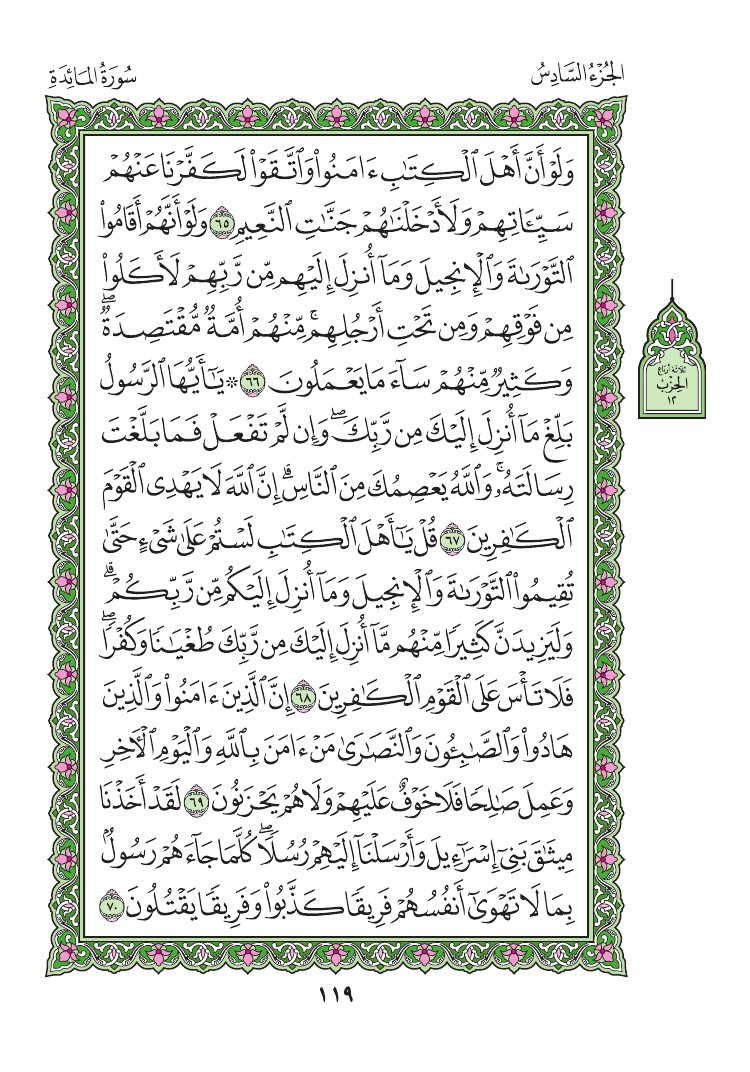 الجُزْءُ السَّادِسُ
سُورَةُ المَائِدَةِ
وَلَوْ أَنَّ أَهْلَ ٱلْكِتَٰبِ ءَامَنُوا۟ وَٱتَّقَوْا۟ لَكَفَّرْنَا عَنْهُمْ
سَيِّـَٔاتِهِمْ وَلَأَدْخَلْنَٰهُمْ جَنَّٰتِ ٱلنَّعِيمِ ٦٥ وَلَوْ أَنَّهُمْ أَقَامُوا۟
ٱلتَّوْرَىٰةَ وَٱلْإِنجِيلَ وَمَآ أُنزِلَ إِلَيْهِم مِّن رَّبِّهِمْ لَأَكَلُوا۟
مِن فَوْقِهِمْ وَمِن تَحْتِ أَرْجُلِهِم ۚ مِّنْهُمْ أُمَّةٌ مُّقْتَصِدَةٌ ۖ
وَكَثِيرٌ مِّنْهُمْ سَآءَ مَا يَعْمَلُونَ ٦٦ * يَٰٓأَيُّهَا ٱلرَّسُولُ
بَلِّغْ مَآ أُنزِلَ إِلَيْكَ مِن رَّبِّكَ ۖ وَإِن لَّمْ تَفْعَلْ فَمَا بَلَّغْتَ
رِسَالَتَهُۥ ۚ وَٱللَّهُ يَعْصِمُكَ مِنَ ٱلنَّاسِ ۗ إِنَّ ٱللَّهَ لَا يَهْدِى ٱلْقَوْمَ
ٱلْكَٰفِرِينَ ٦٧ قُلْ يَٰٓأَهْلَ ٱلْكِتَٰبِ لَسْتُمْ عَلَىٰ شَىْءٍ حَتَّىٰ
تُقِيمُوا۟ ٱلتَّوْرَىٰةَ وَٱلْإِنجِيلَ وَمَآ أُنزِلَ إِلَيْكُم مِّن رَّبِّكُمْ ۗ
وَلَيَزِيدَنَّ كَثِيرًا مِّنْهُم مَّآ أُنزِلَ إِلَيْكَ مِن رَّبِّكَ طُغْيَٰنًا وَكُفْرًا ۖ
فَلَا تَأْسَ عَلَى ٱلْقَوْمِ ٱلْكَٰفِرِينَ ٦٨ إِنَّ ٱلَّذِينَ ءَامَنُوا۟ وَٱلَّذِينَ
هَادُوا۟ وَٱلصَّٰبِـُٔونَ وَٱلنَّصَٰرَىٰ مَنْ ءَامَنَ بِٱللَّهِ وَٱلْيَوْمِ ٱلْـَٔاخِرِ
وَعَمِلَ صَٰلِحًا فَلَا خَوْفٌ عَلَيْهِمْ وَلَا هُمْ يَحْزَنُونَ ٦٩ لَقَدْ أَخَذْنَا
مِيثَٰقَ بَنِىٓ إِسْرَٰٓءِيلَ وَأَرْسَلْنَآ إِلَيْهِمْ رُسُلًا ۖ كُلَّمَا جَآءَهُمْ رَسُولٌۢ
بِمَا لَا تَهْوَىٰٓ أَنفُسُهُمْ فَرِيقًا كَذَّبُوا۟ وَفَرِيقًا يَقْتُلُونَ ٧٠
ثلاثة أرباع
الحزب
١٢
١١٩